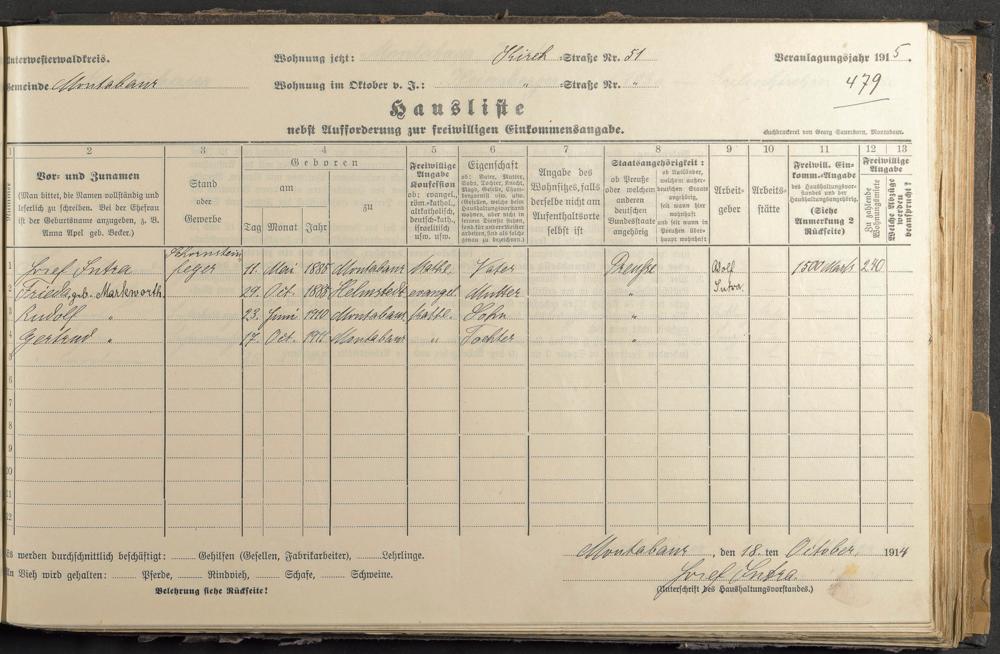 Unterwesterwaldkreis.
Wohnung jetzt: Kirch-Straße Nr. 51
Veranlagungsjahr 1915.
Gemeinde Montabaur
Wohnung im Oktober v. J.: " -Straße Nr. "
479
Hausliste
nebst Aufforderung zur freiwilligen Einkommensangabe.
Buchdruckerei von Georg Sauerborn, Montabaur.
1 2 3 4 5 6 7 8 9 10 11 12 13
Vor- und Zunamen
(Man bittet, die Namen vollständig und
leserlich zu schreiben. Bei der Ehefrau
ist der Geburtsname anzugeben, z. B.
Anna Apel geb. Becker.)
Stand
oder
Gewerbe
Geboren
am
zu
Tag Monat Jahr
Freiwillige
Angabe
Konfession
ob: evangel.,
röm.-kathol.,
altkatholisch,
deutsch-kath.,
israelitisch
usw. usw.
Eigenschaft
ob: Vater, Mutter,
Sohn, Tochter, Knecht,
Angabe des
Wohnsitzes, falls
derselbe nicht am
Aufenthaltsorte
selbst ist
Staatsangehörigkeit:
ob Preuße
oder welchem
anderen
deutschen
Bundesstaate
angehörig
ob Ausländer,
welchem außer-
deutschen Staate
angehörig,
seit wann hier
wohnhaft
und seit wann in
Preußen über-
haupt wohnhaft
Arbeit-
geber
Arbeits-
stätte
Freiwill. Ein-
komm.-Angabe
des Haushaltungsvor-
standes und der
Haushaltungsangehörig.
(Siehe
Anmerkung 2
Rückseite)
Freiwillige
Angabe
Zu zahlende
Wohnungsmiete
Welche Abzüge
werden
beansprucht?
1 Josef Intra Schornsteinfeger 11. Mai 1885 Montabaur kathl. Vater Preuße Adolf Intra 1500 Mark 240
2 Frieda geb. Markworth 29. Oct. 1888 Helmstedt evangel. Mutter "
3 Rudolf " 23. Juni 1910 Montabaur kathl. Sohn "
4 Gertrud " 17. Oct. 1911 Montabaur " Tochter "
5
6
7
8
9
10
11
12
Es werden durchschnittlich beschäftigt: Gehilfen (Gesellen, Fabrikarbeiter), Lehrlinge.
Montabaur, den 18.ten October 1914
An Vieh wird gehalten: Pferde, Rindvieh, Schafe, Schweine.
Josef Intra.
Belehrung siehe Rückseite!
(Unterschrift des Haushaltungsvorstandes.)